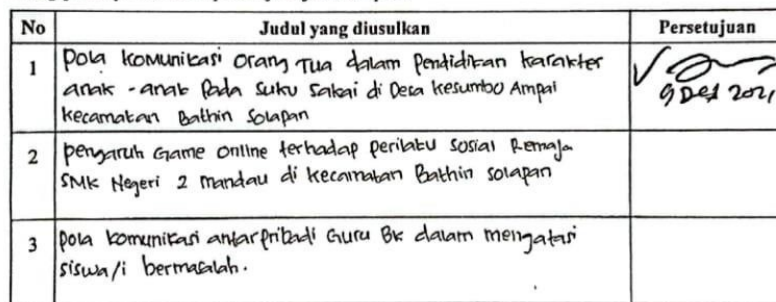 No Judul yang diusulkan Persetujuan
1 Pola komunikasi orang Tua dalam Pendidikan karakter
anak - anak Pada Suku Sakai di Desa kesumbo Ampai
kecamatan Bathin Solapan
9 Des 2021
2 pengaruh Game online terhadap perilaku Sosial Remaja
SMK Negeri 2 Mandau di kecamatan Bathin solapan
3 pola komunikasi antar pribadi Guru BK dalam mengatasi
siswa/i bermasalah.